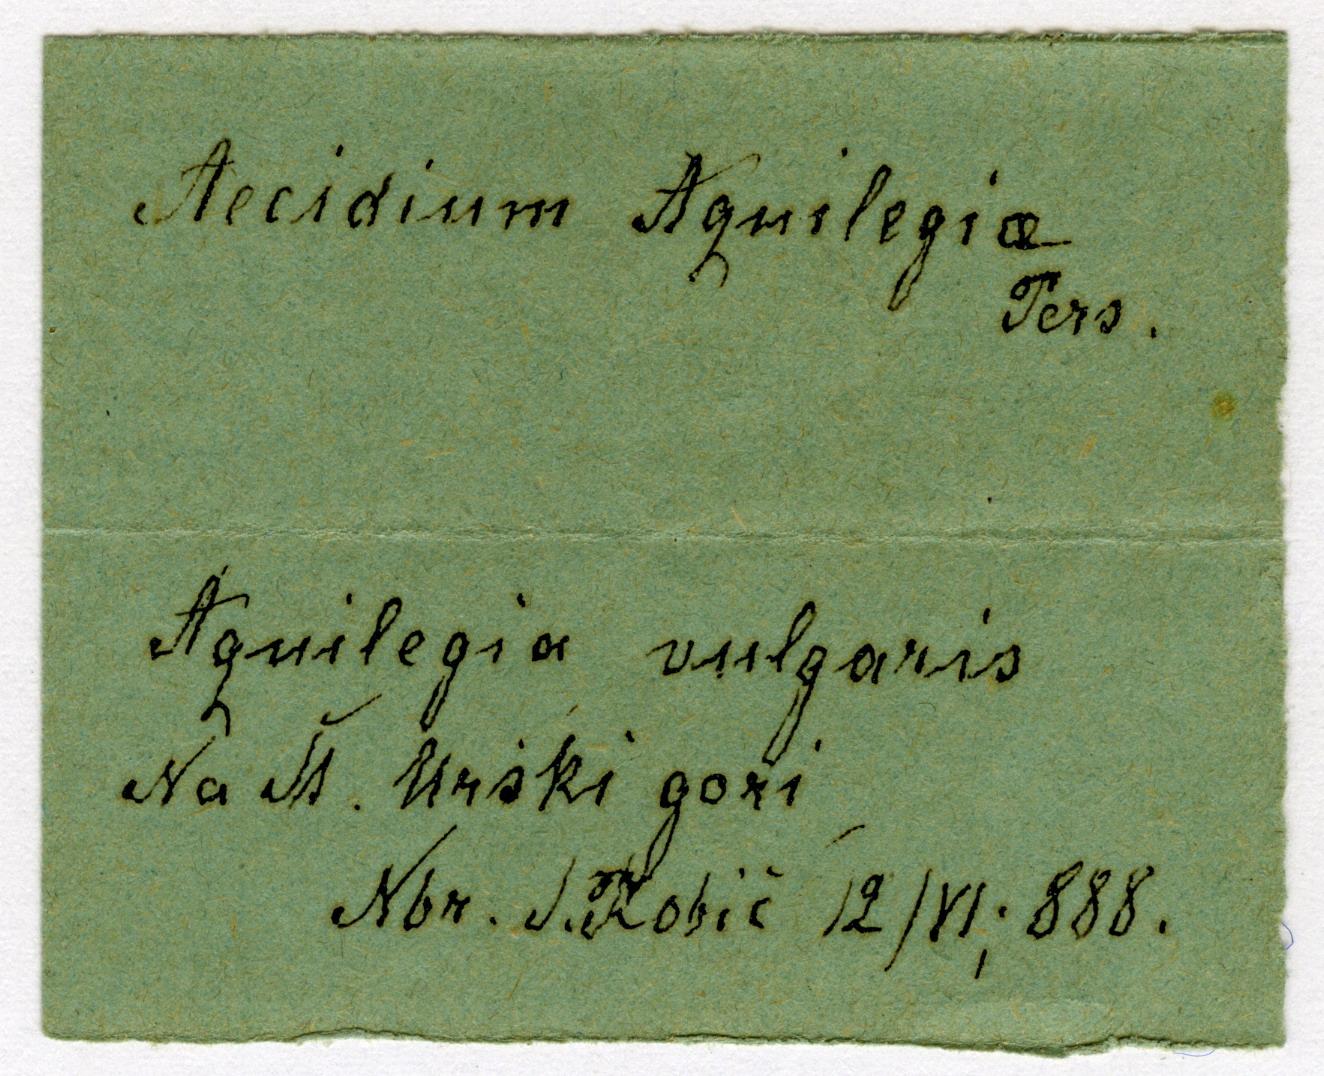 Aecidium Aquilegiæ
Pers.
Aquilegia vulgaris
Na Št. Urški gori
Nbr. S. Robič 12/VI; 888.